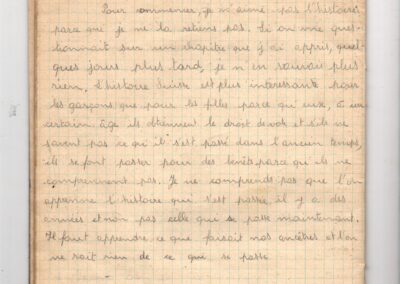 Pour commencer, je n'aime pas l'histoire
parce que je ne la retiens pas. Si on me ques-
tionnait sur un chapitre que j'ai appris, quel-
ques jours plus tard, je n'en saurais plus
rien. L'histoire Suisse est plus intéressante pour
les garçons que pour les filles parce qu'eux, à un
certain âge ils obtiennent le droit de vote et s'ils ne
savent pas ce qu'il s'est passé dans l'ancien temps,
ils se font passer pour des parce qu'ils ne
comprennent pas. Je ne comprends pas que l'on
apprenne l'histoire qui s'est passée il y a des
années et non pas celle qui se passe maintenant.
Il faut apprendre ce que faisait nos ancêtres et l'on
ne sait rien de ce qui se passe